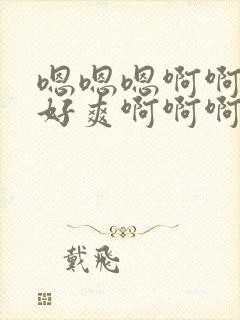 嗯嗯嗯啊啊
好爽啊啊啊
戴飛